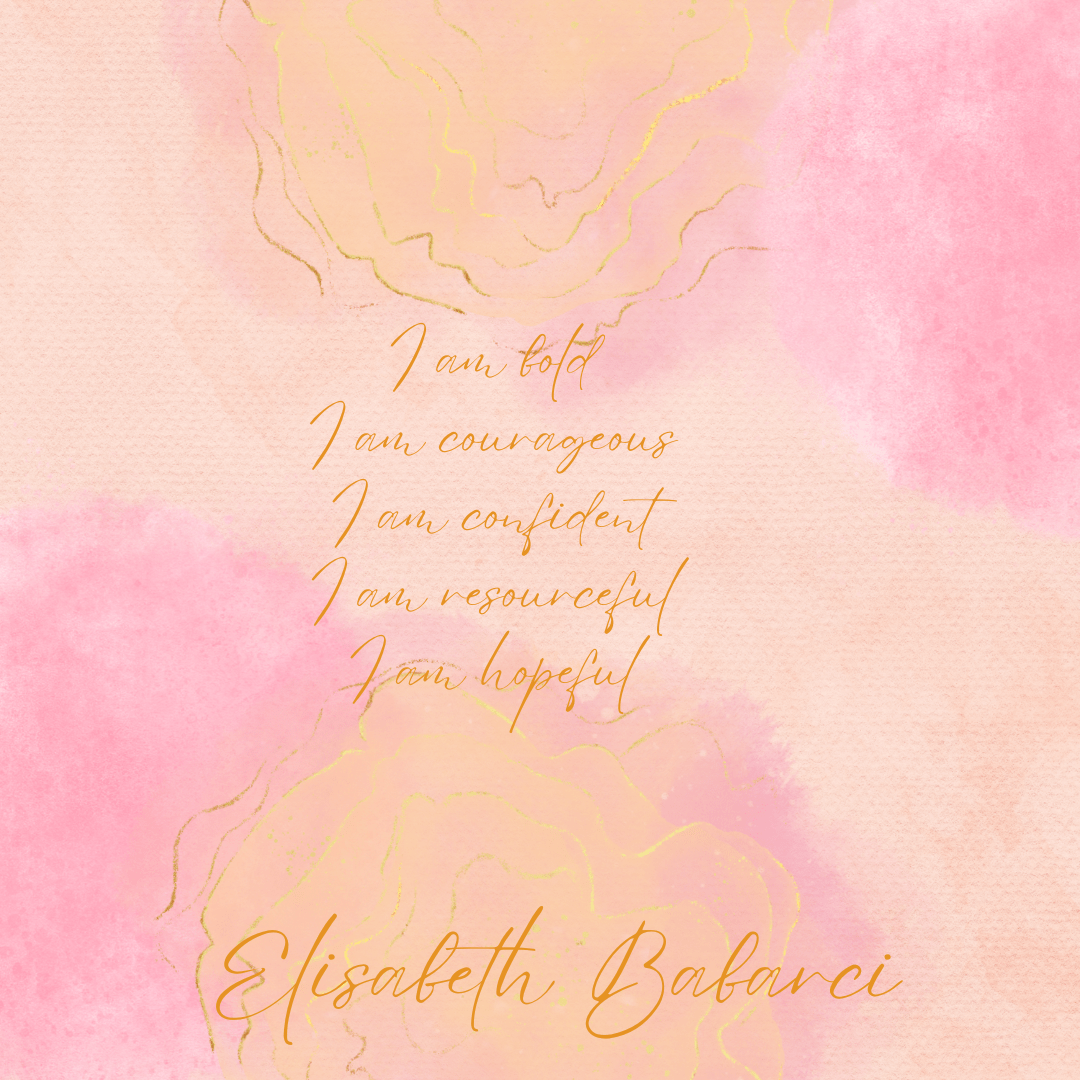 I am bold
I am courageous
I am confident
I am resourceful
I am hopeful
Elisabeth Babarci